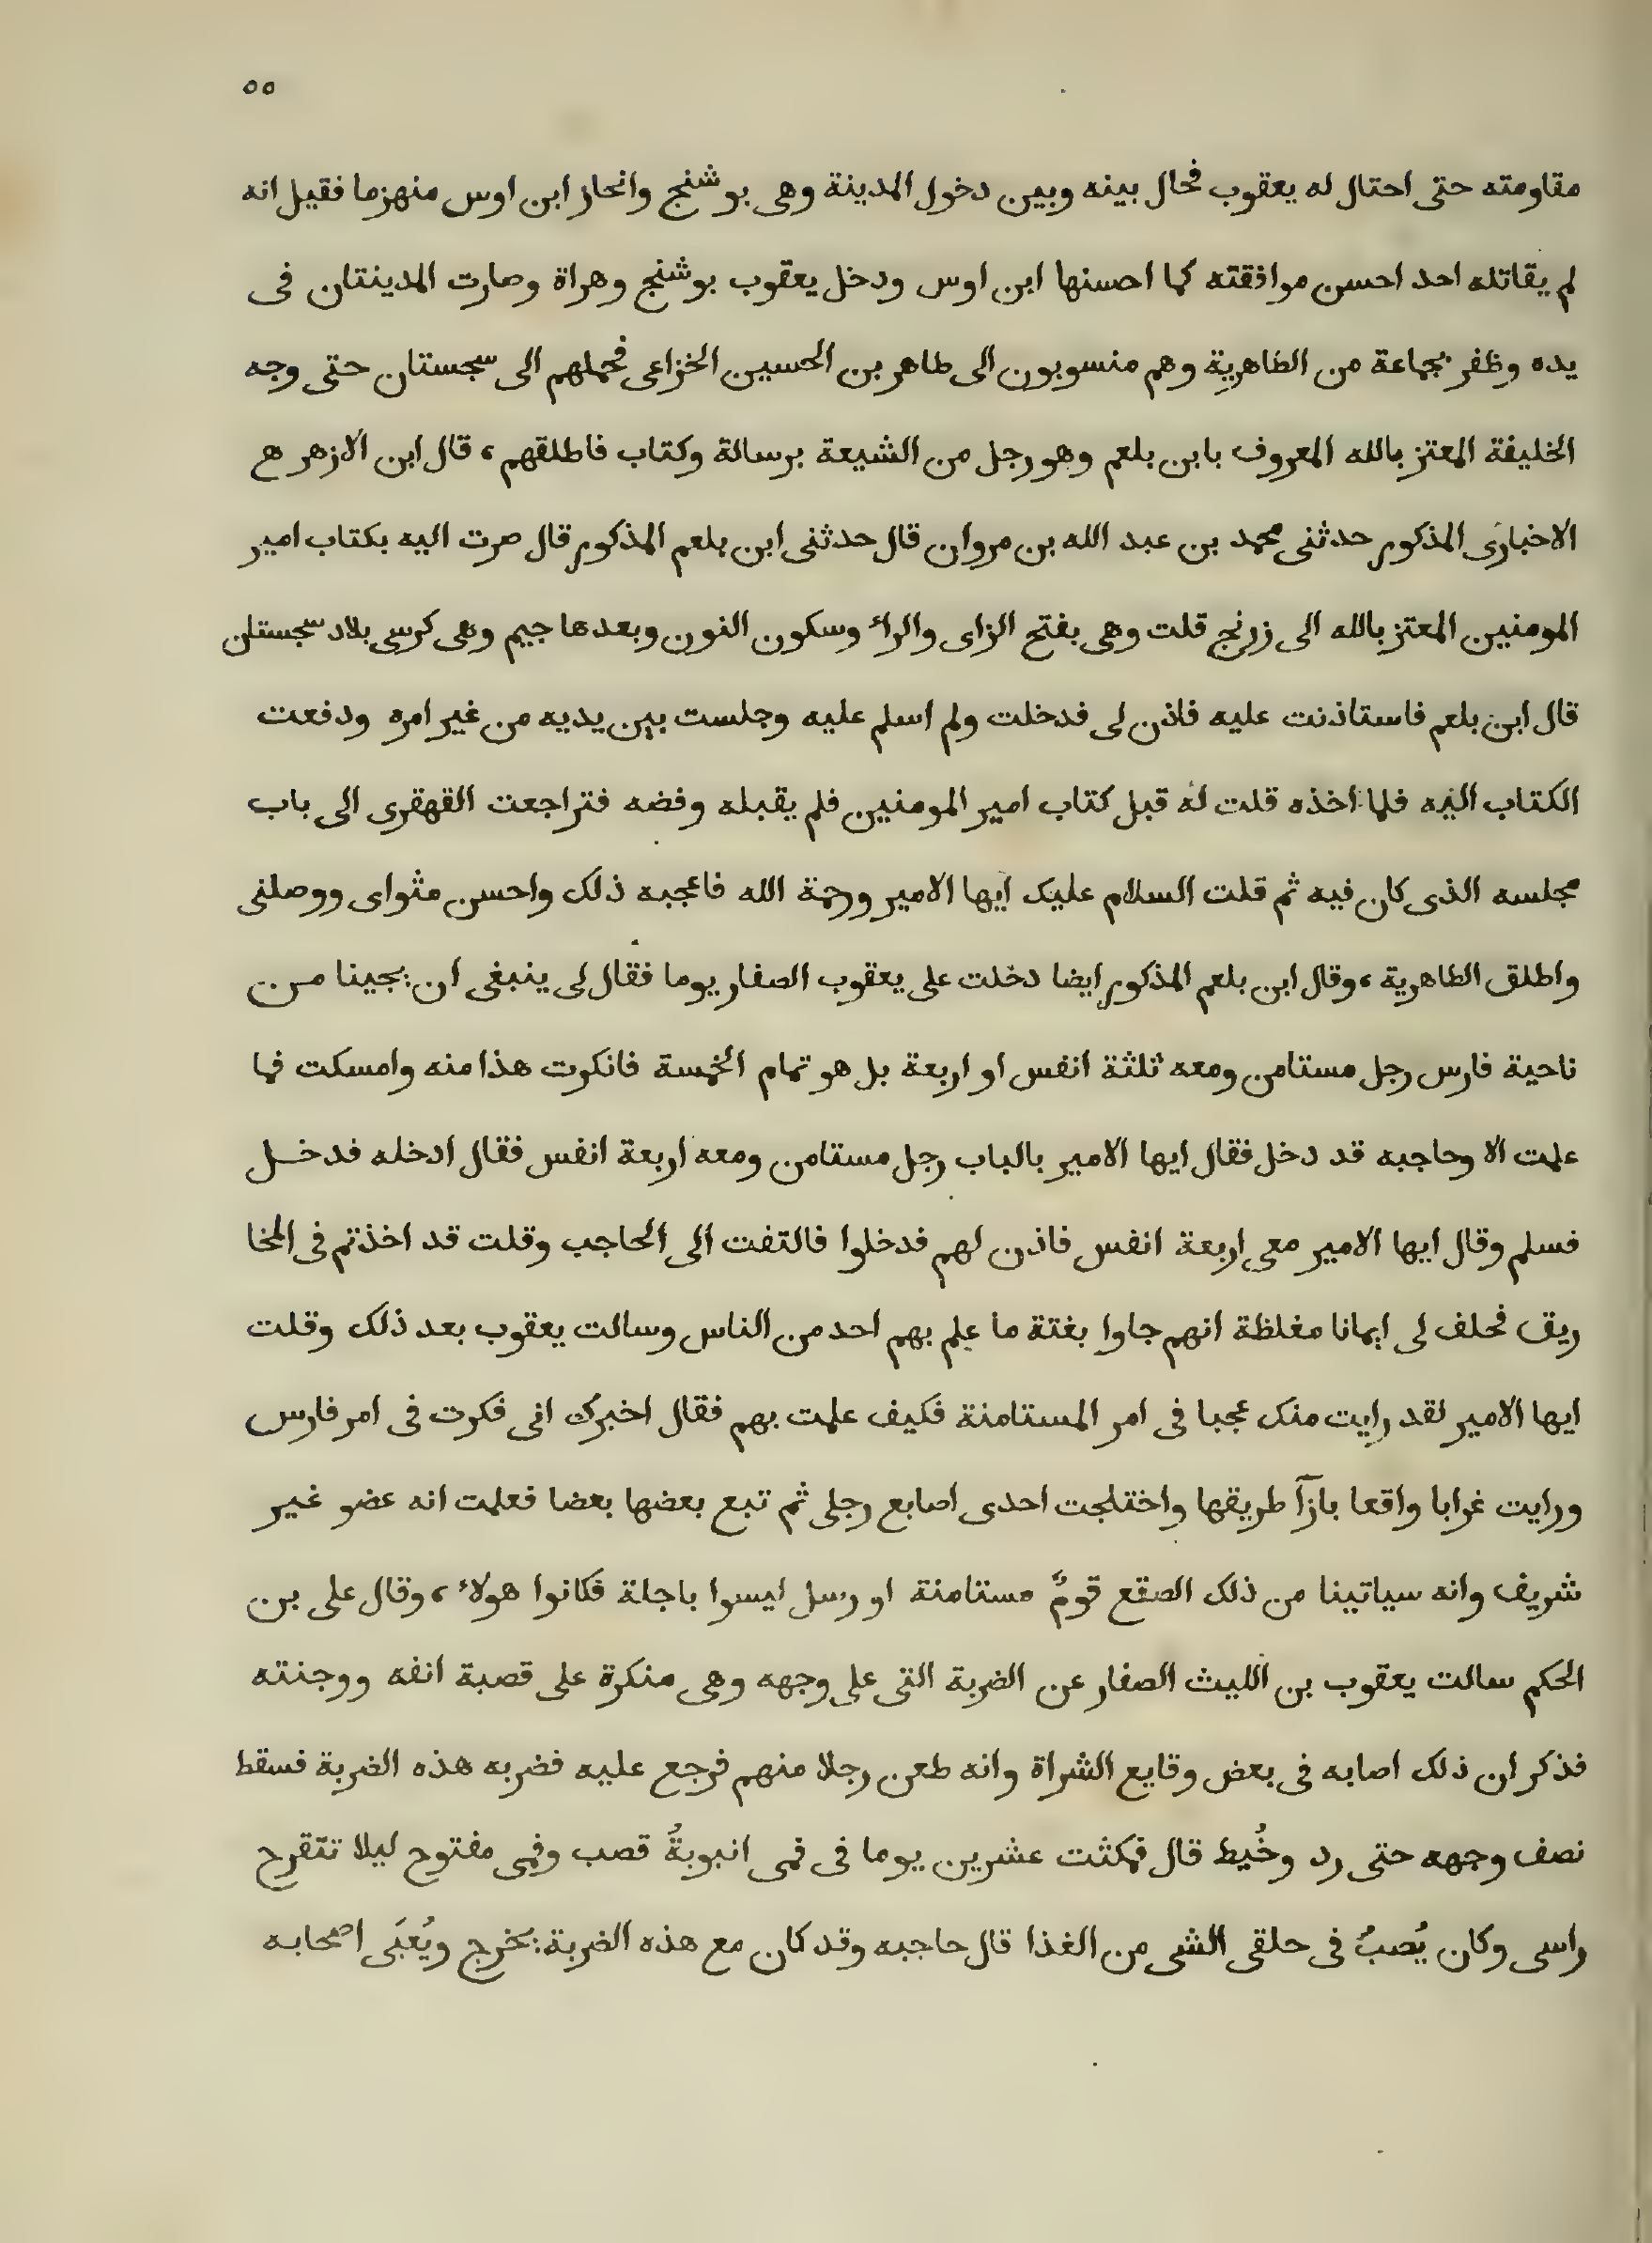 ٥٥
مقاومته حتى احتال له يعقوب فحال بينه وبين دخول المدينة وهى بوشنج وانحاز ابن اوس منهزما فقيل انه
لم يقاتله احد احسن موافقته كما احسنها ابن اوس ودخل يعقوب بوشنج وهراة وصارت المدينتان فى
يده وظفر بجماعة من الطاهرية وهم منسوبون الى طاهر بن الحسين الخزاعى فحملهم الى سجستان حتى وجه
الخليفة المعتز بالله المعروف بابن بلعم وهو رجل من الشيعة برسالة وكتاب فاطلقهم، قال ابن الازهر ح
الاخبارى المذكور حدثنى محمد بن عبد الله بن مروان قال حدثنى ابن بلعم المذكور قال صرت اليه بكتاب امير
المومنين المعتز بالله الى زرنج قلت وهى بفتح الزاى والراء وسكون النون وبعدها جيم وهى كرسى بلاد سجستان
قال ابن بلعم فاستاذنت عليه فاذن لى فدخلت ولم اسلم عليه وجلست بين يديه من غير امره ودفعت
الكتاب اليه فلما اخذه قلت له قبل كتاب امير المومنين فلم يقبله وفضه فتراجعت القهقرى الى باب
مجلسه الذى كان فيه ثم قلت السلام عليك ايها الامير ورحمة الله فاعجبه ذلك واحسن مثواى ووصلنى
واطلق الطاهرية، وقال ابن بلعم المذكور ايضا دخلت على يعقوب الصفار يوما فقال لى ينبغى ان يجينا من
ناحية فارس رجل مستامن ومعه ثلثة انفس او اربعة بل هو تمام الخمسة فانكرت هذا منه وامسكت فما
علمت الا وحاجبه قد دخل فقال ايها الامير بالباب رجل مستامن ومعه اربعة انفس فقال ادخله فدخل
فسلم وقال ايها الامير معى اربعة انفس فاذن لهم فدخلوا فالتفت الى الحاجب وقلت قد اخذتم فى المخا
ريق فحلف لى ايمانا مغلظة انهم جاوا بغتة ما علم بهم احد من الناس وسالت يعقوب بعد ذلك وقلت
ايها الامير لقد رايت منك عجبا فى امر المستامنة فكيف علمت بهم فقال اخبرك انى فكرت فى امر فارس
ورايت غرابا واقعا بازآ طريقها واختلجت احدى اصابع رجلى ثم تبع بعضها بعضا فعلمت انه عضو غير
شريف وانه سياتينا من ذلك الصقع قومٌ مستامنة او رسل ليسوا باجلة فكانوا هولاء، وقال على بن
الحكم سالت يعقوب بن الليث الصفار عن الضربة التى على وجهه وهى منكرة على قصبة انفه ووجنته
فذكر ان ذلك اصابه فى بعض وقايع الشراة وانه طعن رجلا منهم فرجع عليه فضربه هذه الضربة فسقط
نصف وجهه حتى رد وخُيط قال فمكثت عشرين يوما فى فمى انبوبةُ قصب وفمى مفتوح ليلا تتقرح
راسى وكان يُصبُ فى حلقى الشى من الغذا قال حاجبه وقد كان مع هذه الضربة يخرج ويُعبَى اصحابه